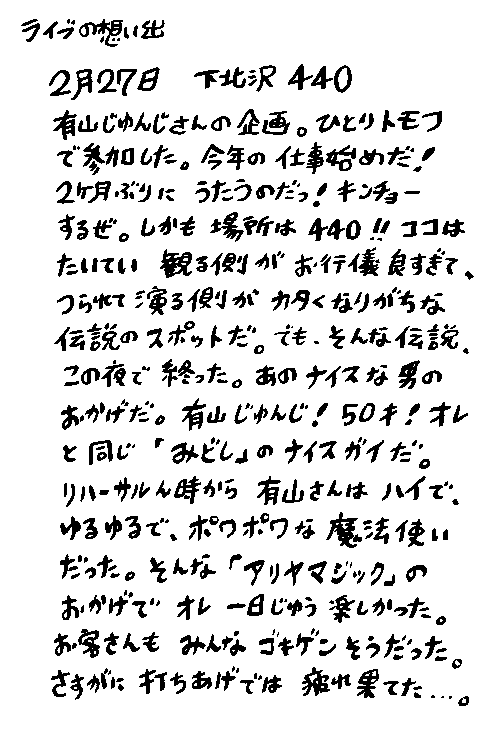 ライブの想い出
2月27日 下北沢 440
有山じゅんじさんの企画。ひとりトモフ
で参加した。今年の仕事始めだ!
2ヶ月ぶりに うたうのだっ! キンチョー
するぜ。しかも 場所は 440!! ココは
たいてい 観る側が お行儀良すぎて、
つられて 演る側が カタくなりがちな
伝説のスポットだ。でも、そんな伝説、
この夜で 終った。あのナイスな男の
おかげだ。有山じゅんじ! 50才! オレ
と同じ「みどし」のナイスガイだ。
リハーサルん時から 有山さんは ハイで、
ゆるゆるで、ポワポワな 魔法使い
だった。そんな「アリヤマジック」の
おかげで オレ 一日じゅう 楽しかった。
お客さんも みんな ゴキゲン そうだった。
さすがに 打ちあげでは 疲れ果てた…。